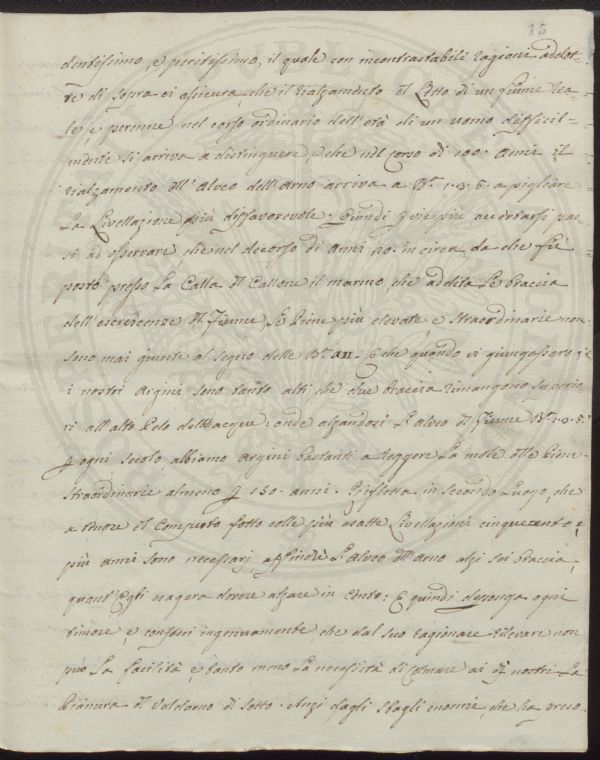 15
dentissimo, e peritissimo, il quale con incontrastabili ragioni addot=
te di sopra ci assicura, che il rialzamento del Letto di un fiume rea=
le, e perenne nel corso ordinario dell'età di un uomo difficil=
mente si arriva a distinguere, e che nel Corso di 100. Anni il
rialzamento dell'Alveo dell'Arno arriva a B.a 1. 3. 5. a pigliare
La Livellazione più disfavorevole. Quindi p vie più accertarsi pas=
si ad osservare, che nel decorso di Anni 70. in circa, da che fù
posto presso La Calla del Callone il marmo, che addita Le braccia
dell'escrescenze del Fiume, Le Piene più elevate, e straordinarie non
sono mai giunte al segno delle B.a an. p che quando vi giungessero,
i nostri Argini sono tanto alti che due braccia rimangono superio=
ri all'alto Pelo dell'acque: onde alzandosi L'alveo del Fiume B.a 1. 3. 5.
p ogni secolo, abbiamo Argini bastanti a reggere La mole delle Piene
straordinarie almeno p 150. anni. Rifletta in secondo Luogo, che
a tenore del Computo fatto colle più esatte Livellazioni cinquecento, e
più anni sono necessarj, affinchè L'alveo dell'Arno alzi sei braccia,
quant'Egli esagera dovere alzare in Cento: E quindi deponga ogni
timore e confessi ingenuamente, che dal suo ragionare rilevare non
può La facilità, e tanto meno La necessità di Colmare ai dì nostri La
Pianura del Valdarno di sotto. Anzi dagli sbagli enormi, che ha preso